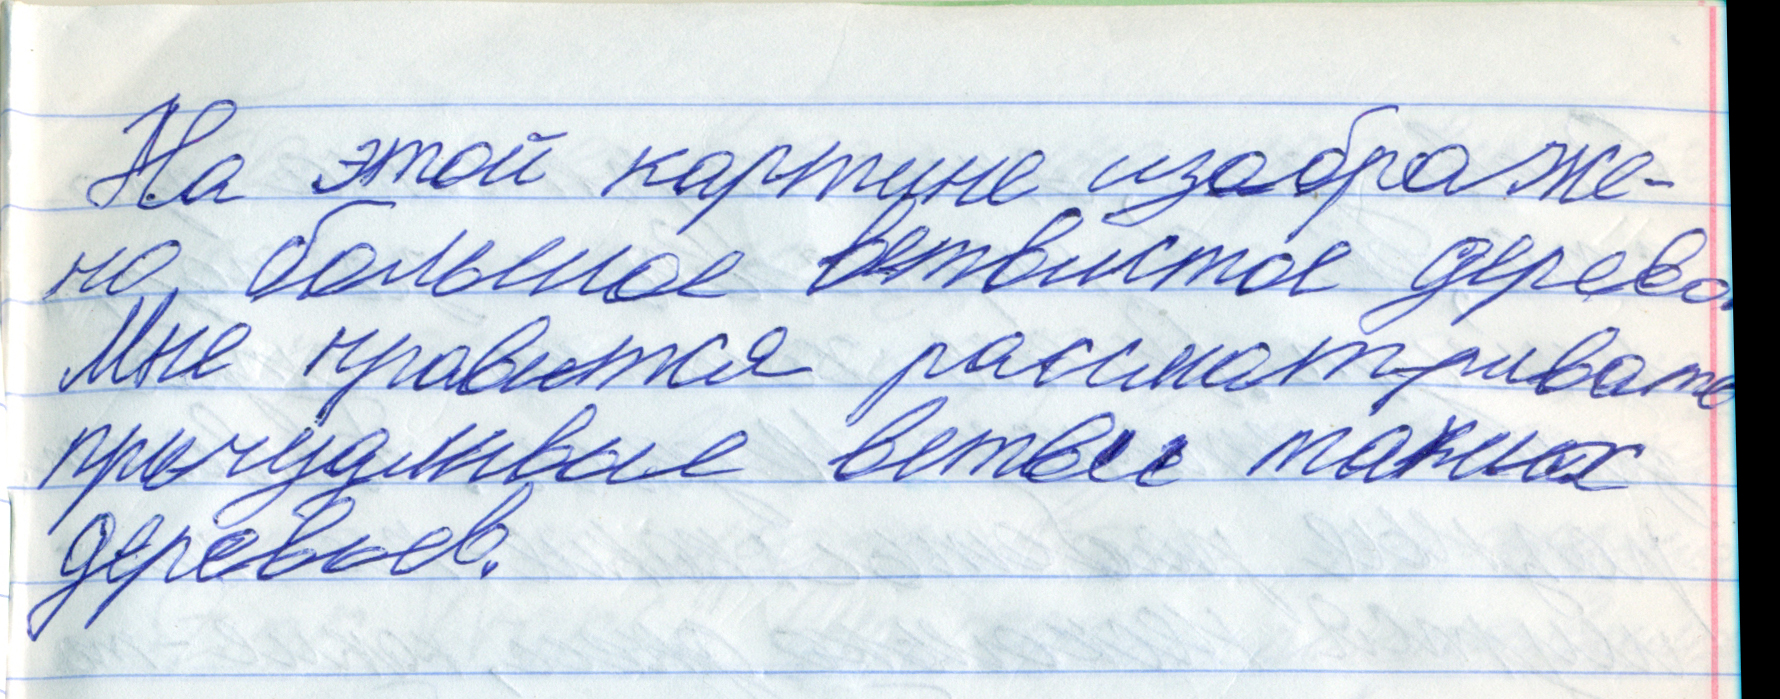 На этой картине изображе-
но большое ветвистое дерево.
Мне нравится рассматривать
причудливые ветви таких
деревьев.